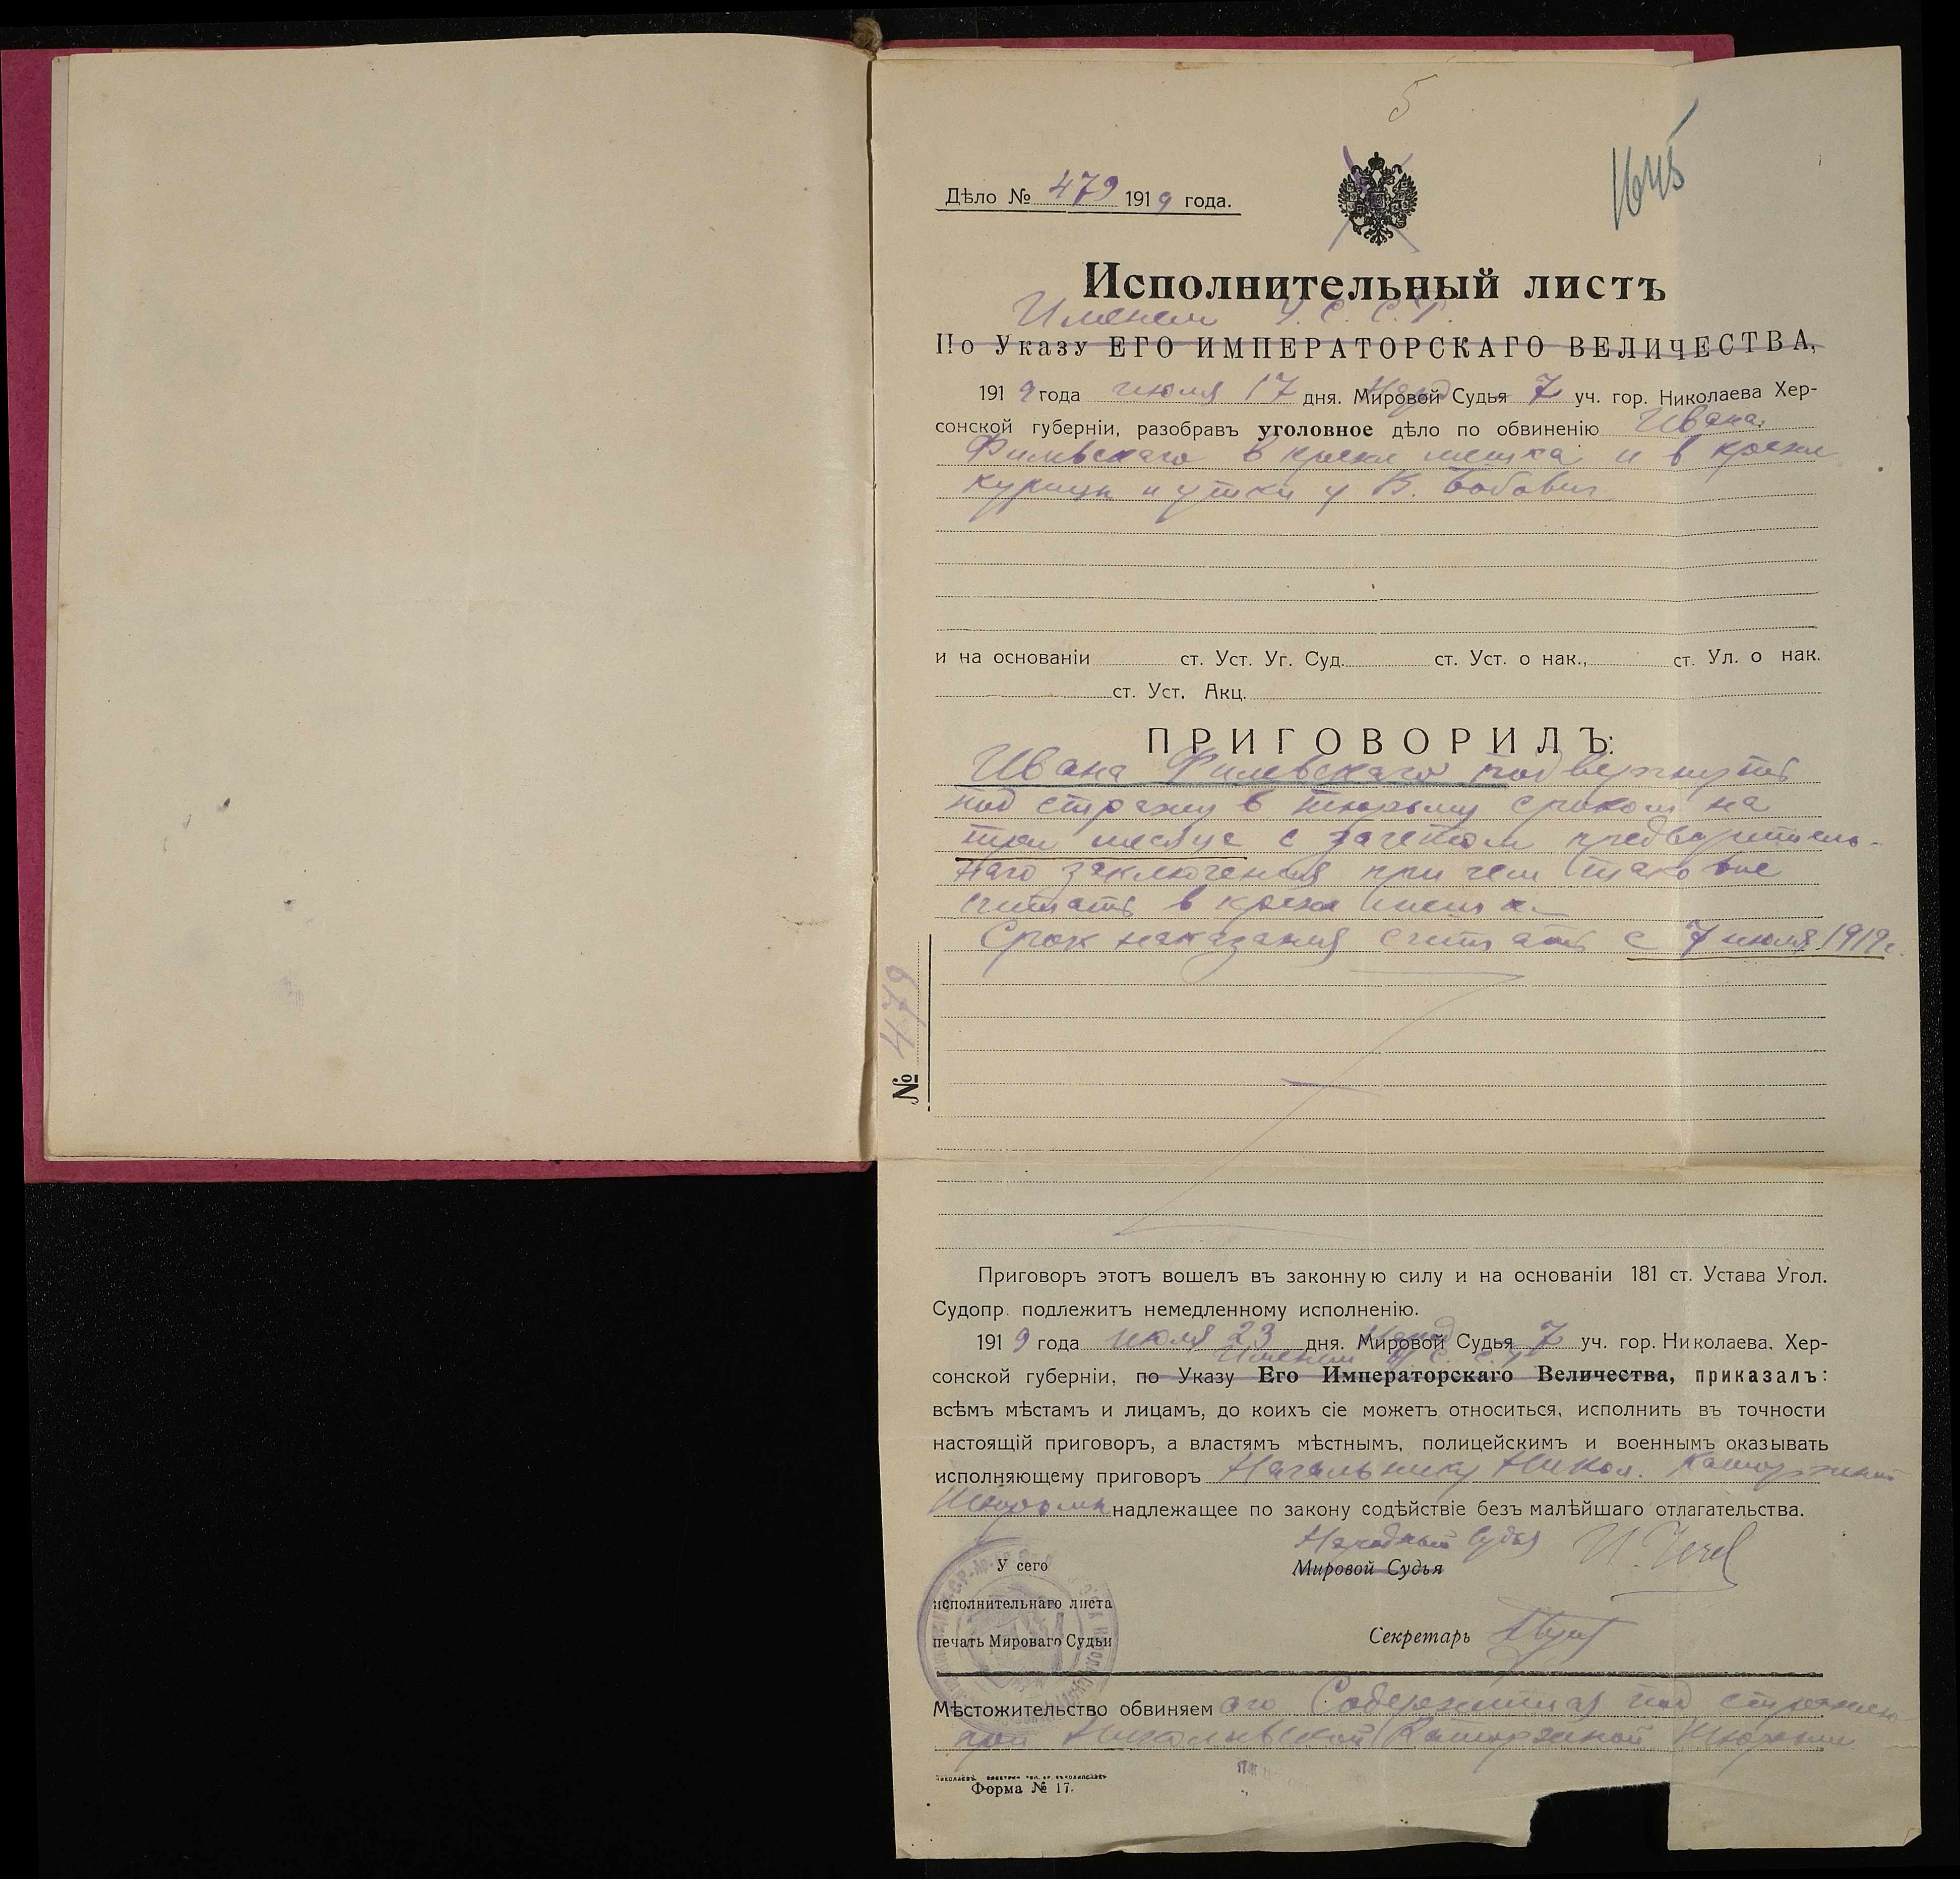 5
1645
Дѣло № 479 1919 года.
Исполнительный листъ
Именем У. С. С. Р.
По Указу ЕГО ИМПЕРАТОРСКАГО ВЕЛИЧЕСТВА,
1919 года июля 17 дня. Мировой Нард Судья 7 уч. гор. Николаева Хер-
сонской губерніи, разобравъ уголовное дѣло по обвиненію Ивана
Филевскаго в кражи мешка и в кражи
курицы и утки у К. Бабович
и на основаніи ст. Уст. Уг. Суд. ст. Уст. о нак., ст. Ул. о нак.
ст. Уст. Акц.
ПРИГОВОРИЛЪ:
Ивана Филевскаго подвергнуть
под стражу в тюрьму сроком на
три месяца с зачетом предваритель-
наго заключения при чем таковые
считать в кражи мешка
Срок наказания считать с 7 июля 1919 г.
№ 479
Приговоръ этотъ вошелъ въ законную силу и на основаніи 181 ст. Устава Угол.
Судопр. подлежитъ немедленному исполненію.
1919 года июля 23 дня. Мировой Народ Судья 7 уч. гор. Николаева, Хер-
Именем У. С. С. Р.
сонской губерніи, по Указу Его Императорскаго Величества, приказалъ:
всѣмъ мѣстамъ и лицамъ, до коихъ сіе можетъ относиться, исполнить въ точности
настоящій приговоръ, а властямъ мѣстнымъ, полицейскимъ и военнымъ оказывать
исполняющему приговоръ Начальнику Никол. Каторжной
Тюрьмы надлежащее по закону содѣйствіе безъ малѣйшаго отлагательства.
Народный Судья
У сего
Мировой Судья
исполнительнаго листа
печать Мироваго Судьи
Секретарь
Мѣстожительство обвиняемаго Содержится под стражею
при Николаевской Каторжной Тюрьме
Форма № 17.